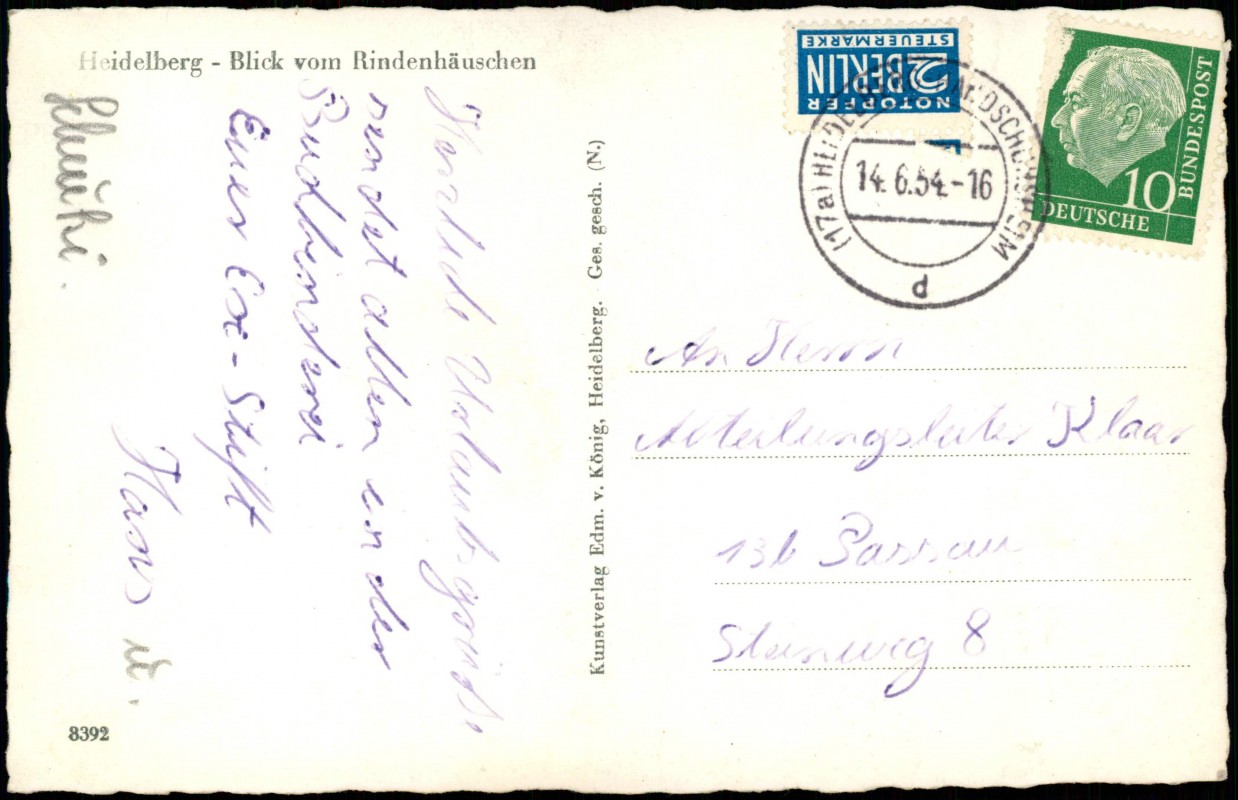 Heidelberg - Blick vom Rindenhäuschen
Herzliche Urlaubsgrüße
sendet allen in der
Buchbinderei
Euer Exe-Stift
Hans u.
8392
Kunstverlag Edm. v. König, Heidelberg. Ges. gesch. (N.)
NOTOPFER
2 BERLIN
STEUERMARKE
(17a) HEIDELBERG-HANDSCHUHSHEIM
14.6.54.-16
d
10
DEUTSCHE
BUNDESPOST
An Herrn
Abteilungsleiter Klaar
13b Passau
Steinweg 8